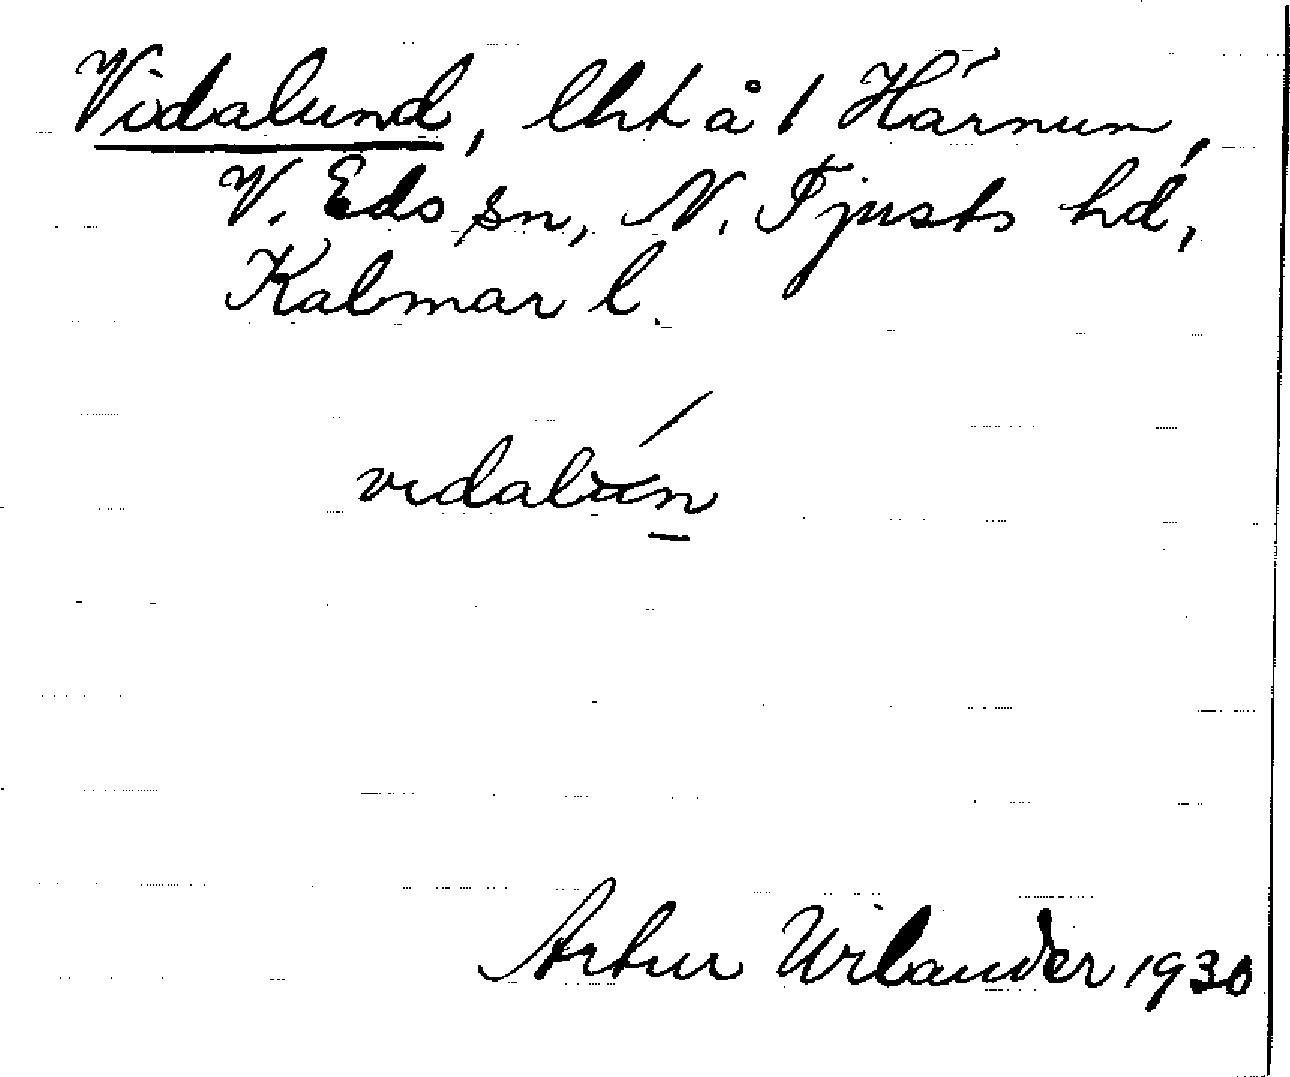 Vidalund, lht å 1 Härnum,
V. Eds sn, N. Tjusts hd,
Kalmar l.
vidalún
Artur Wilander 1930